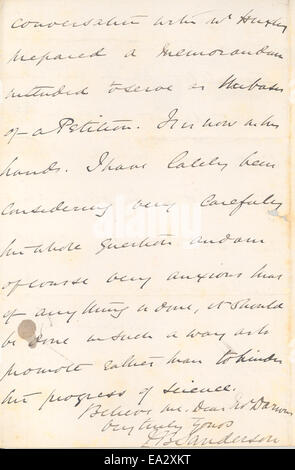 conversation with Mr Huxley
prepared a Memorandum
intended to serve as the basis
of a Petition. It is now in his
hands. I have lately been
considering very carefully
the whole question and am
of course very anxious that
if anything is done, it should
be done in such a way as to
promote rather than to hinder
the progress of science.
Believe me, Dear Mr Darwin
Very truly yours
Sanderson
alamy
EA2XKT